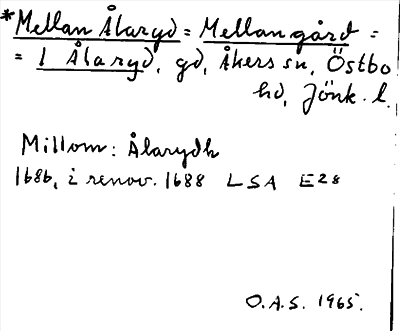 *Mellan Ålaryd = Mellangård =
= 1 Ålaryd, gd, Åkers sn, Östbo
hd, Jönk. l.
Millom: Ålarydh
1686, i renov. 1688 LSA E28
O.A.S. 1965.